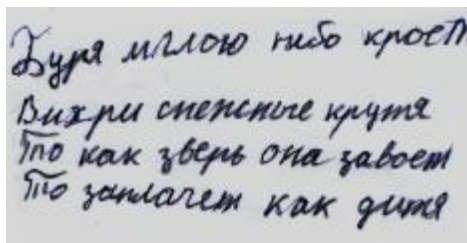 Буря мглою небо кроет
Вихри снежные крутя
То как зверь она завоет
То заплачет как дитя